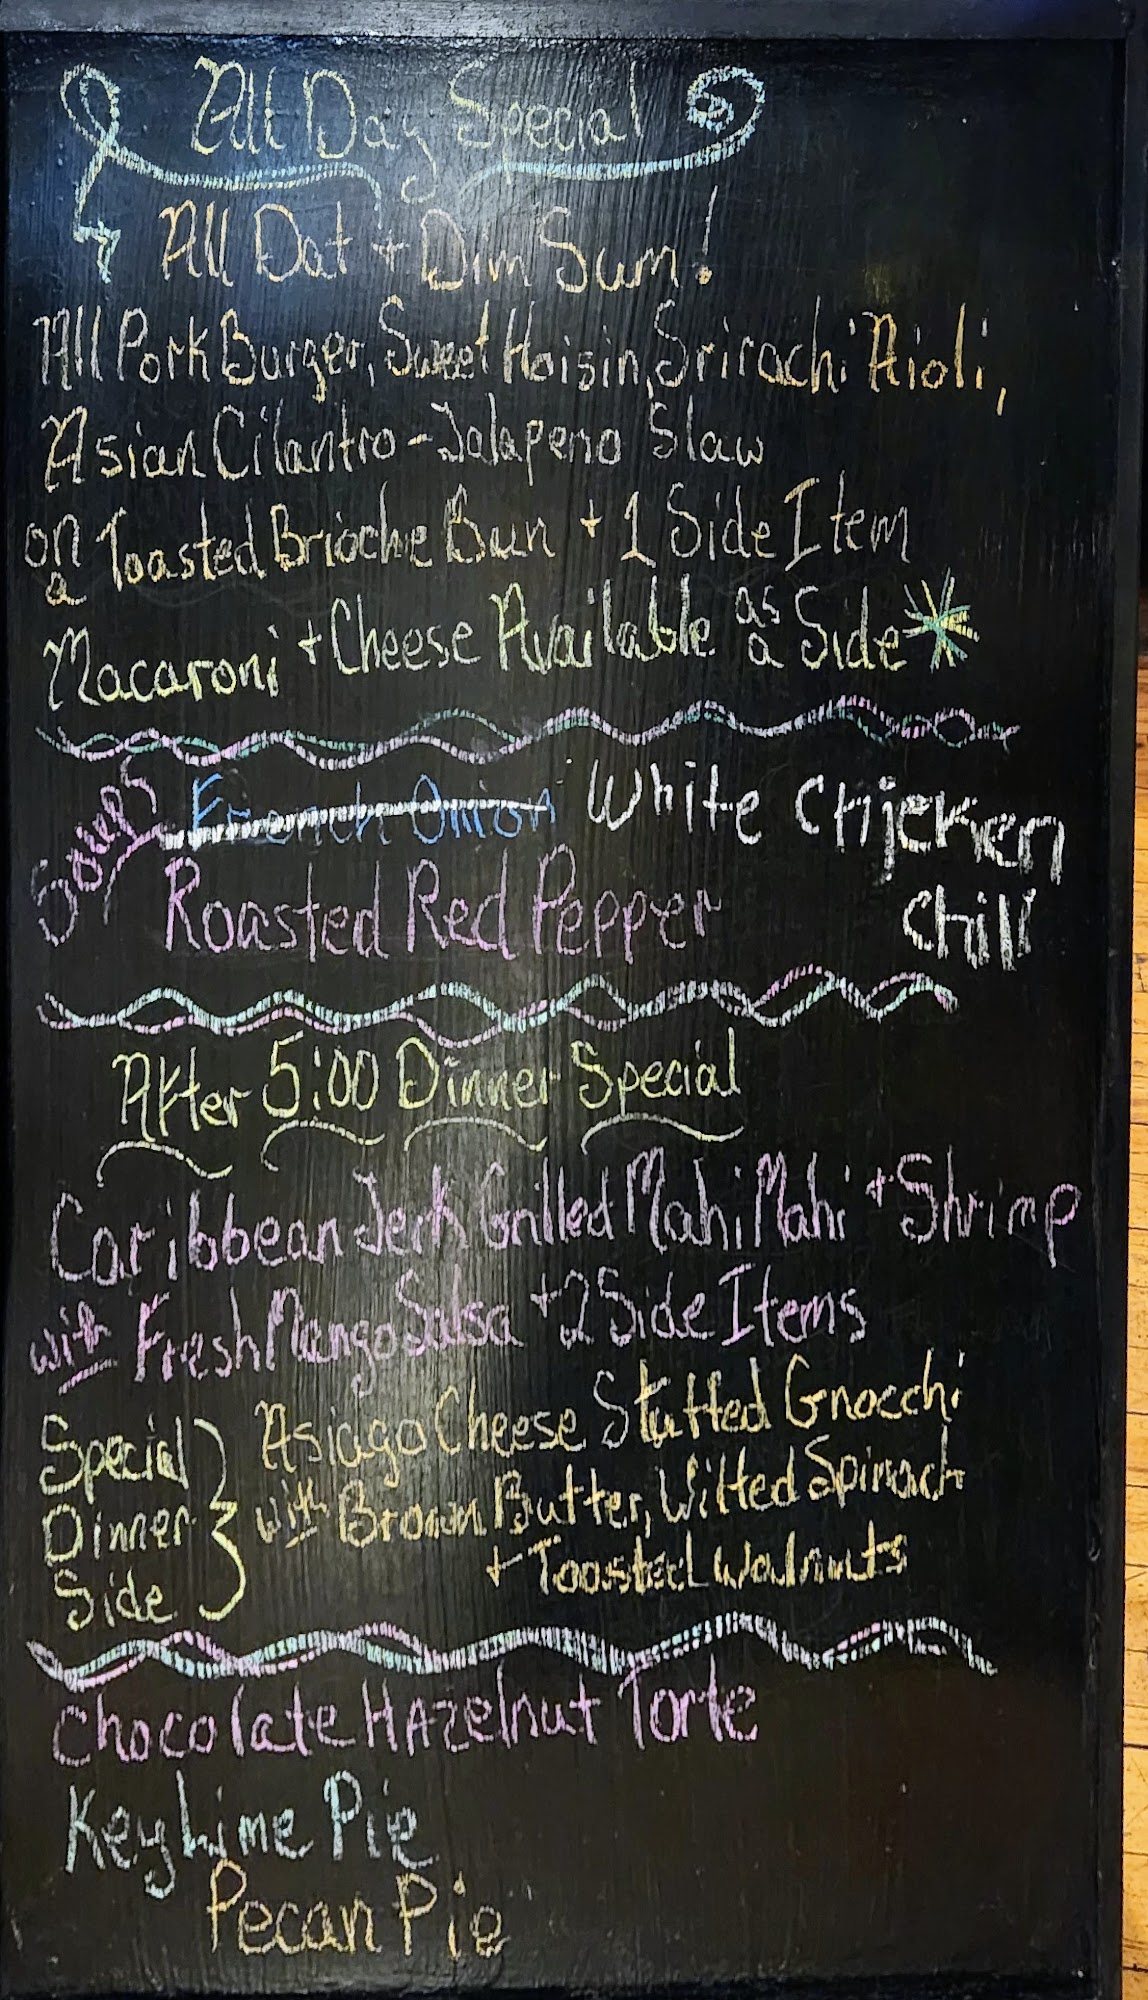 All Day Special
All Dat + Dim Sum!
All Pork Burger, Sweet Hoisin, Srirachi Aioli,
Asian Cilantro-Jalapeno Slaw
on a Toasted Brioche Bun + 1 Side Item
Macaroni + Cheese Available as a Side
Soups French Onion White Chicken
Roasted Red Pepper Chili
After 5:00 Dinner Special
Caribbean Jerk Grilled Mahi Mahi + Shrimp
with Fresh Mango Salsa + 2 Side Items
Special Dinner Side
Asiago Cheese Stuffed Gnocchi
with Brown Butter, Wilted Spinach
+ Toasted Walnuts
Chocolate HAzelnut Torte
Key Lime Pie
Pecan Pie